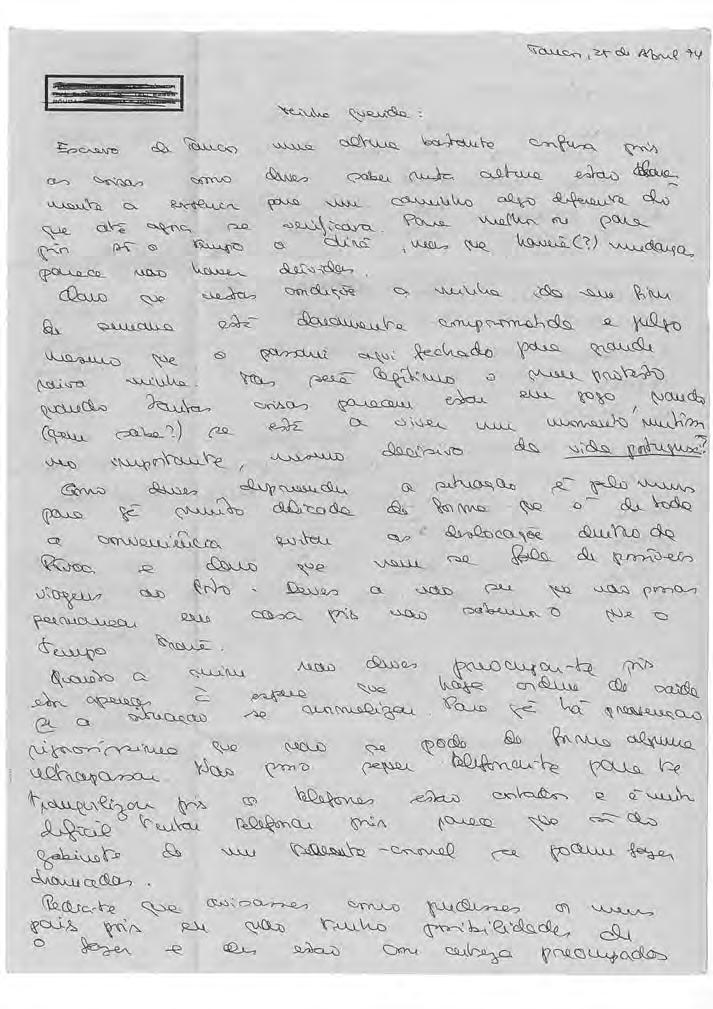 Tancos, 25 de Abril 74
querida:
Escrevo de Tancos numa altura bastante confusa pois
as coisas como deves saber nesta altura estão clara-
mente a evoluir para um caminho algo diferente do
que até agora se verificara. Para melhor ou para
pior só o tempo o dirá, mas que haverá(?) mudanças
parece não haver dúvidas.
Claro que nestas condições a minha ida em fim
de semana está claramente comprometida e julgo
mesmo que o passarei aqui fechado para grande
raiva minha. Mas será legítimo o meu protesto
quando tantas coisas parecem estar em jogo, quando
(quem sabe?) se está a viver um momento muitíssi-
mo importante, mesmo decisivo da vida portuguesa?
Como deves depreender a situação é pelo menos
para já muito delicada de forma que é de toda
a conveniência evitar as deslocações dentro de
e claro que nem se fala de possíveis
viagens ao Porto. Deves a não ser que não possas
permanecer em casa pois não sabemos o que o
tempo trará.
Quanto a mim não deves preocupar-te pois
à espera que haja ordem de saída
e a situação se normalizar. Para já há prevenção
rigorosíssima que não se pode de forma alguma
ultrapassar. Não posso sequer telefonar-te para te
tranquilizar pois os telefones estão cortados e é muito
difícil tentar telefonar pois parece que só do
gabinete de um tenente-coronel se podem fazer
chamadas.
Pedia-te que avisasses como pudesses os meus
pais pois eu não tenho possibilidades de
o fazer e eles estão com certeza preocupados